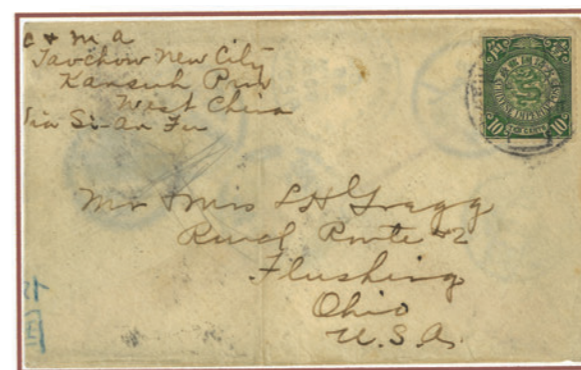 C & M A
Taochow New City
Kansuh Prov
West China
Via Si-An Fu
10
10
CHINESE IMPERIAL POST
10 CENTS 10
Mr & Mrs L H Gragg
Rural Route #2
Flushing
Ohio
U.S.A.